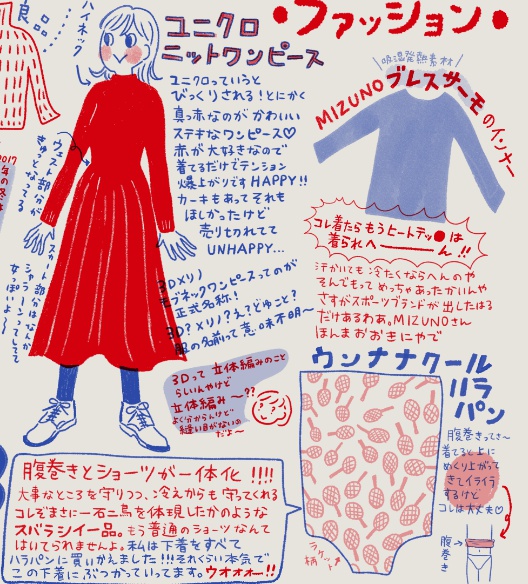 •ファッション•
良品
ハイネック
ユニクロ
ニットワンピース
ユニクロっていうと
びっくりされる！とにかく
真っ赤なのが かわいい
ステキなワンピース♡
赤が大好きなので
着てるだけでテンション
爆上がりです HAPPY!!
カーキもあってそれも
ほしかったけど
売り切れてて
UNHAPPY...
ウエスト部分が
きゅっとなってる
2017
年の冬は
スカート部分はなんか
シャラーンってしてて
女っぽいよ〜
3Dメリノ
ネックワンピースってのが
正式名称！
3D？メリノ？え？どゆこと？
服の名前って意味不明〜
3Dって立体編みのこと
らしいんやけど
立体編み〜??
よく分からんけど
縫い目がないの
だよ〜
吸湿発熱素材
MIZUNO ブレスサーモのインナー
コレ着たらもうヒートテッ●は
着られへーーーん!!
汗かいても冷たくならへんのや
そんでもって めっちゃあったかいんや
さすがスポーツブランドが出したはる
だけあるわあ。MIZUNOさん
ほんまおおきにやで
ウンナナクール
ハラ
パン
腹巻きってさ〜
着てると上に
めくり上がって
きてイライラ
するけど
コレは大丈夫♡
腹巻き
ラケット柄
腹巻きとショーツが一体化 !!!!
大事なところを守りつつ、冷えからも守ってくれる
コレぞまさに一石二鳥を体現したかのような
スバラシイ一品。もう普通のショーツなんて
はいてられませんよ。私は下着をすべて
ハラパンに買いかえました!!!それくらい本気で
この下着にぶつかっていってます。ウオォォー!!